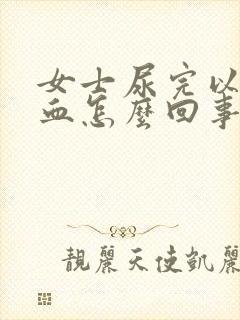 女士尿完以
血怎麼回事
靚麗天使凱麗